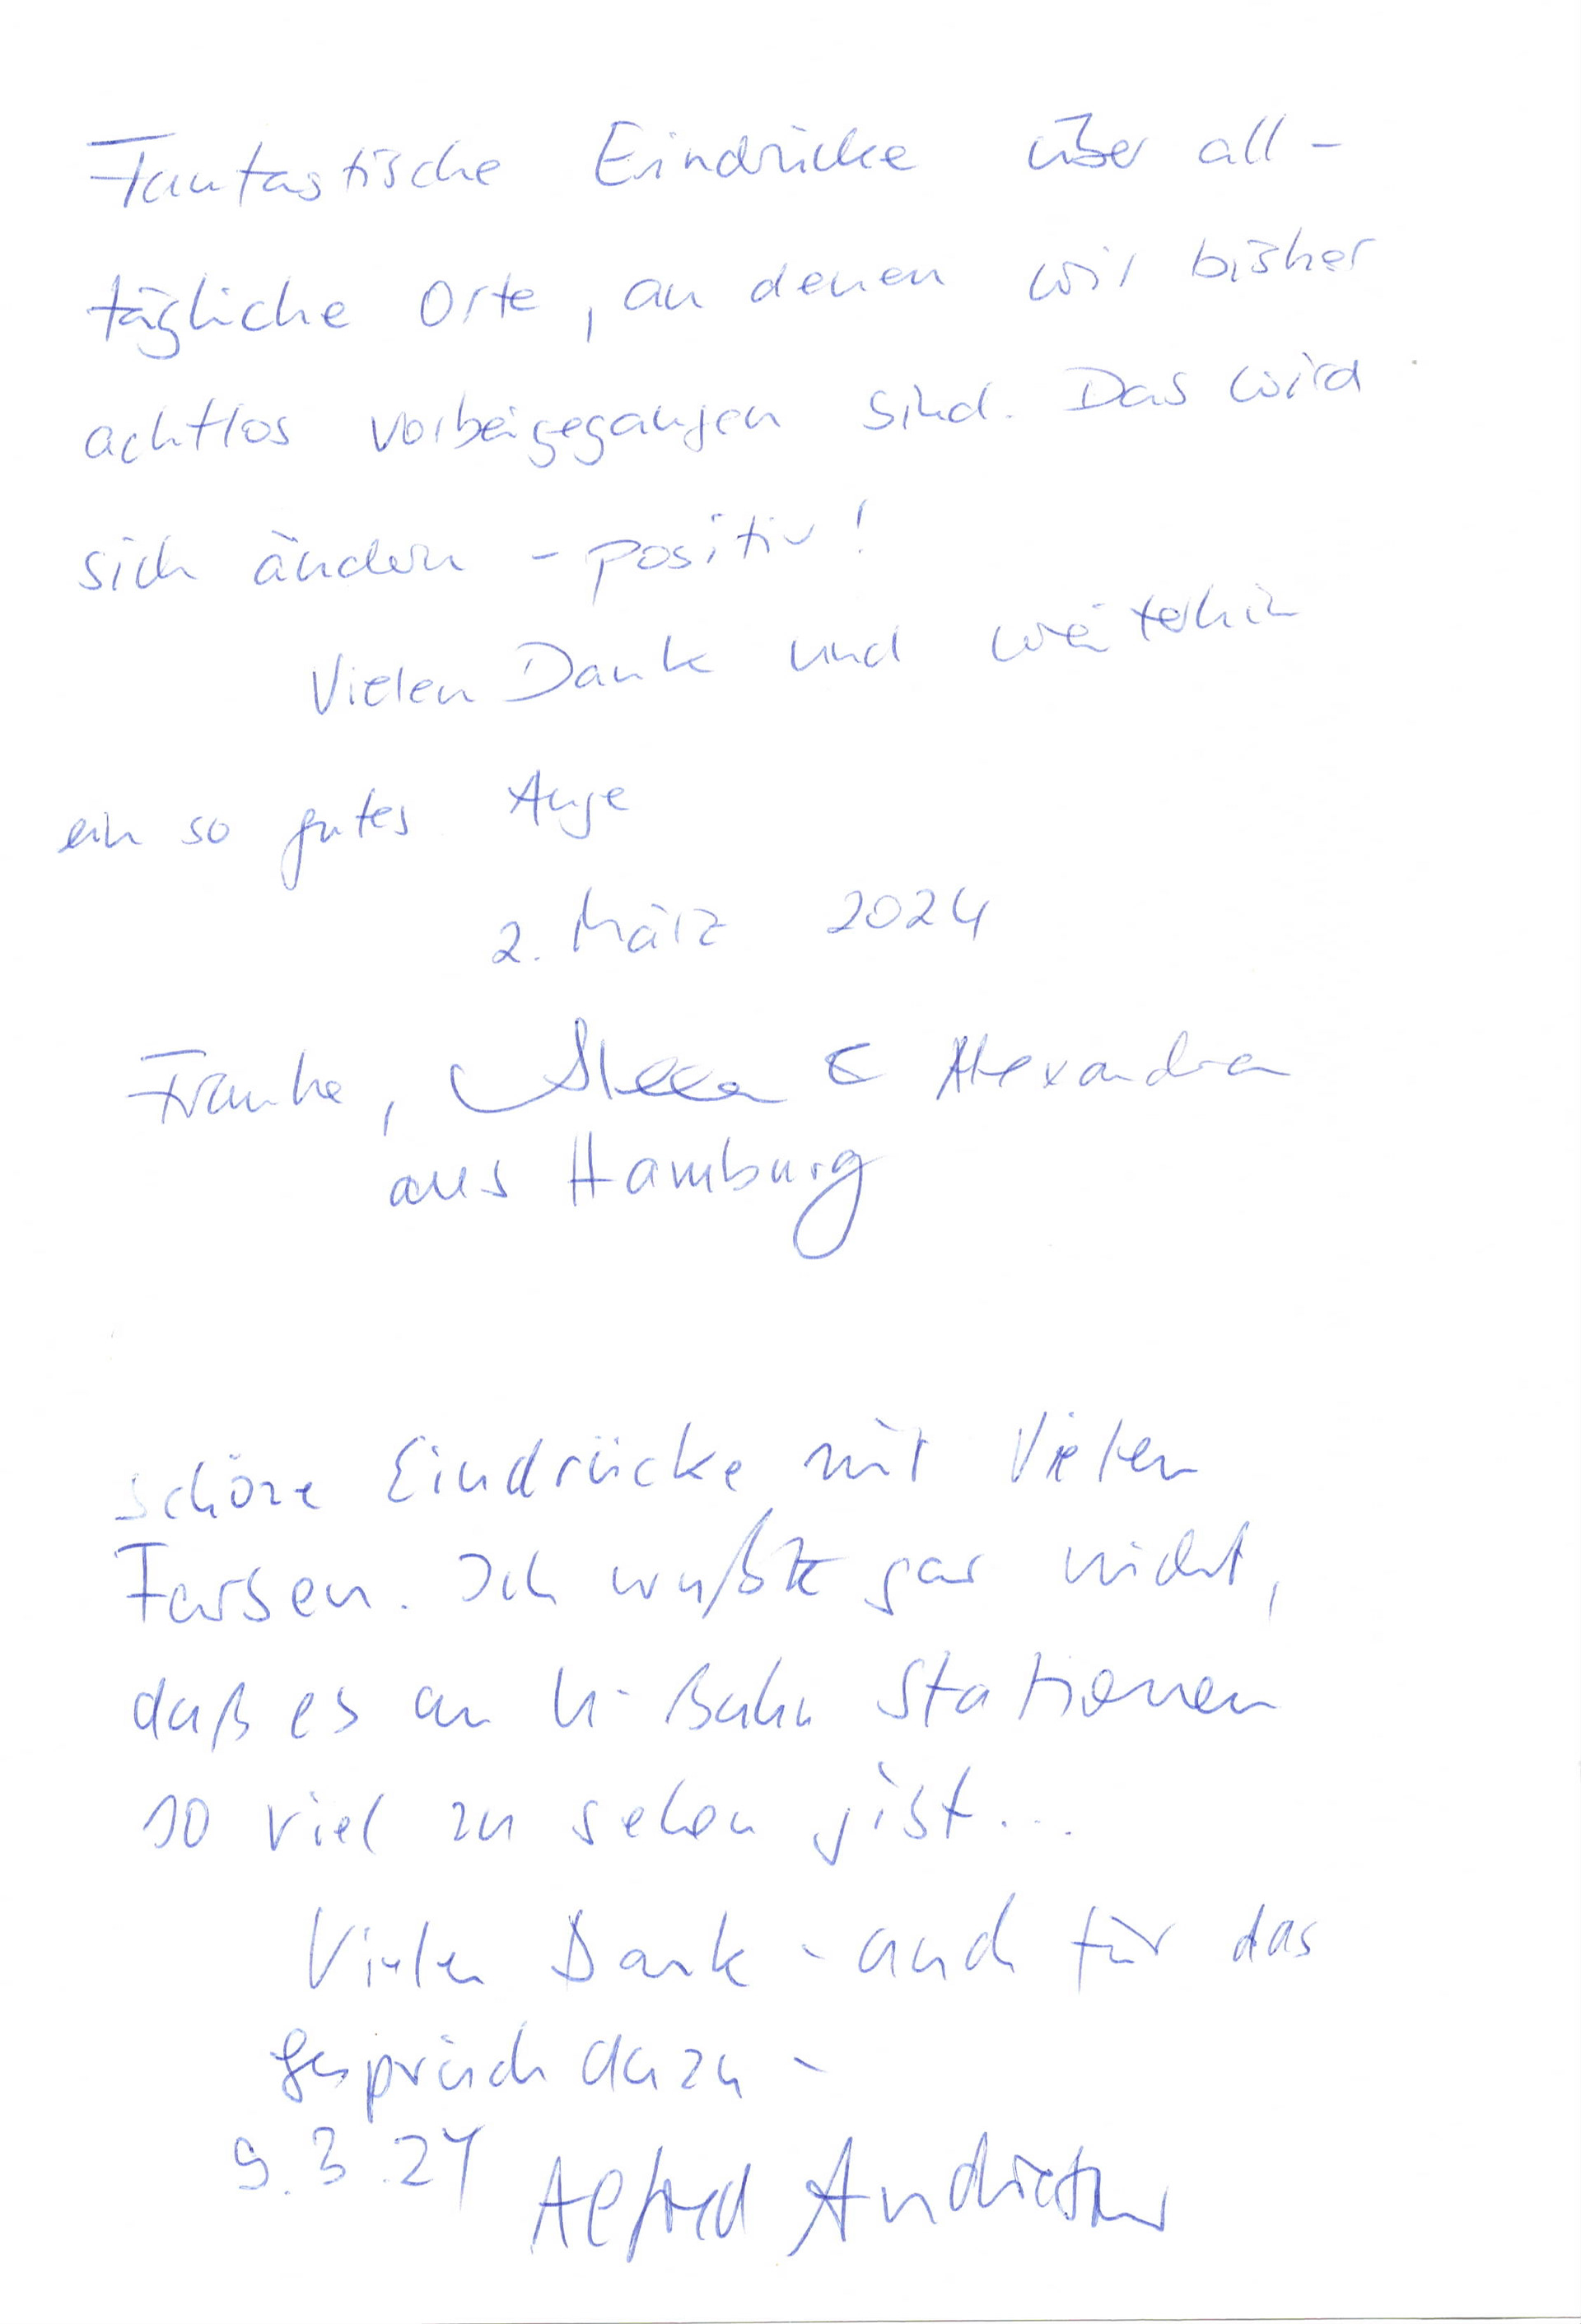 Fantastische Eindrücke über all-
tägliche Orte, an denen wir bisher
achtlos vorbeigegangen sind. Das wird
sich ändern - positiv!
Vielen Dank und weiterhin
ein so gutes Auge
2. März 2024
Frauke, & Alexandra
aus Hamburg
schöne Eindrücke mit Vielen
Farben. Ich wußte gar nicht,
daß es an U-Bahn Stationen
so viel zu sehen gibt...
Vielen Dank - auch für das
Gespräch dazu -
9.3.24 Alfred